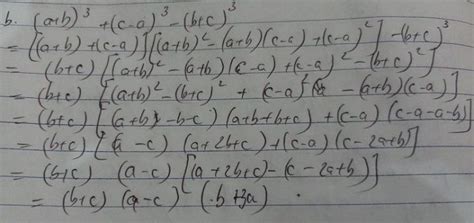 b. (a+b)³ + (c-a)³ - (b+c)³
= [(a+b) + (c-a)] [(a+b)² - (a+b)(c-c) + (c-a)²] - (b+c)³
= (b+c) [(a+b)² - (a+b)(c-a) + (c-a)² - (b+c)²]
= (b+c) [(a+b)² - (b+c)² + (c-a)² - (a+b)(c-a)]
= (b+c) [(a+b - b-c) (a+b+b+c) + (c-a) (c-a-a-b)]
= (b+c) [(a-c) (a+2b+c) + (c-a) (c-2a+b)]
= (b+c) (a-c) [(a+2b+c) - (c-2a+b)]
= (b+c) (a-c) (b+3a)